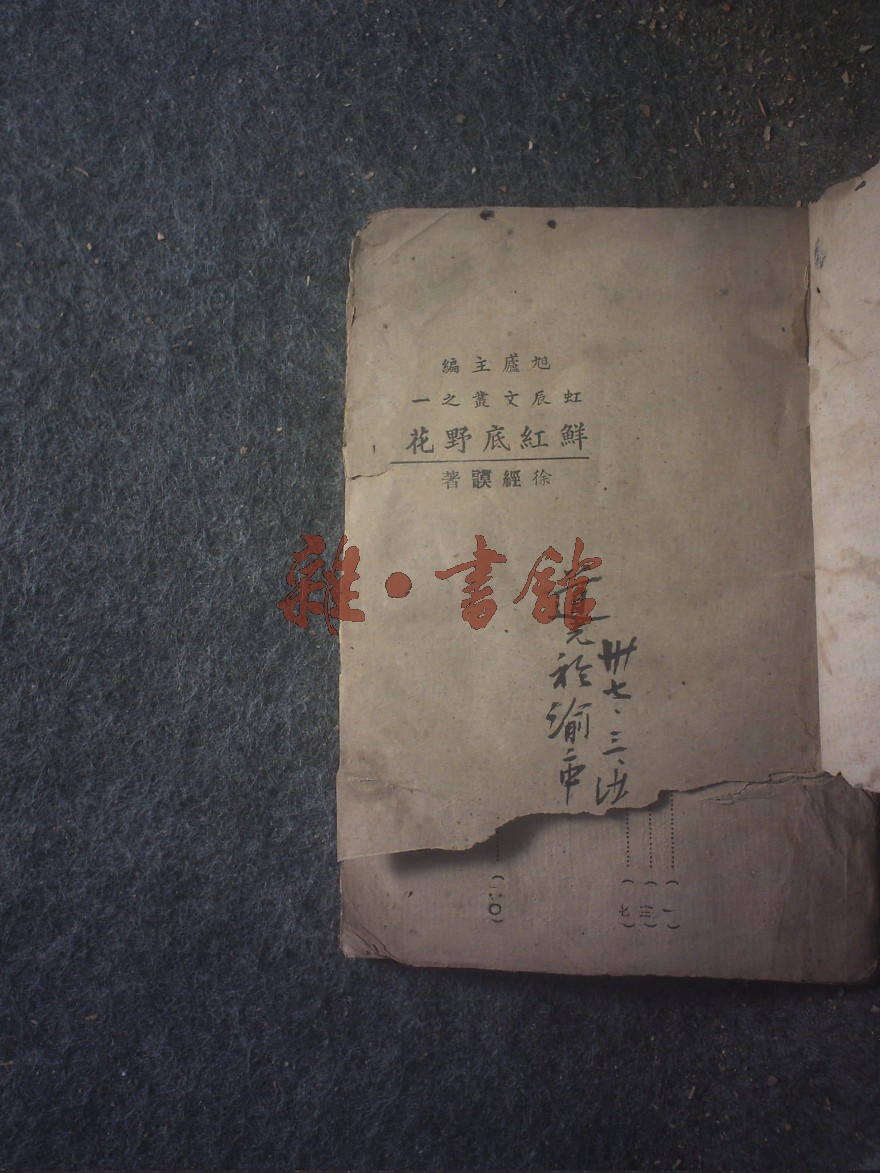 旭廬主編
虹辰文叢之一
鮮紅底野花
徐經謨著
雜·書館
卅七·三、
道元於渝市
(一)
(三)
(七)